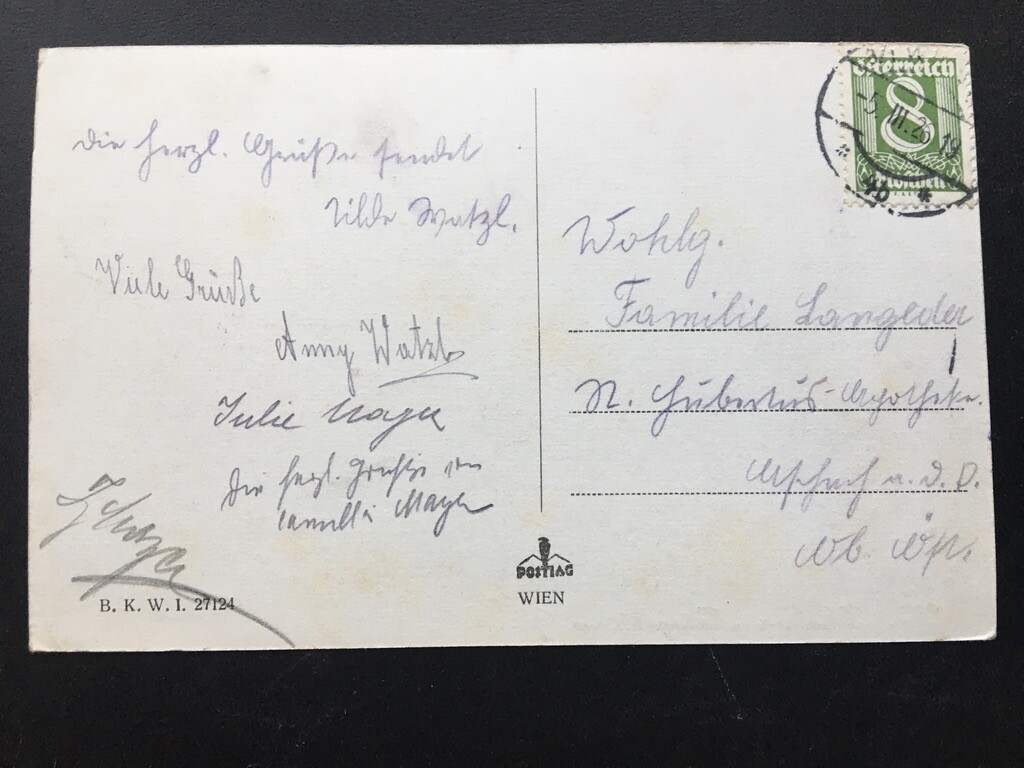 Die herzl. Grüße sendet
Hilde Watzl.
Viele Grüße
Anny Watzl
Julie Mayer
Die herzl. Grüße von
Camilla Mayer
B. K. W. I. 27124
POSTIAG
WIEN
Österreich
8
Groschen
-5. III. 26 19
Wohlg.
Familie Langeder
St. Hubertus-Apotheke.
Aschach a. d. D.
Ob. Öst.